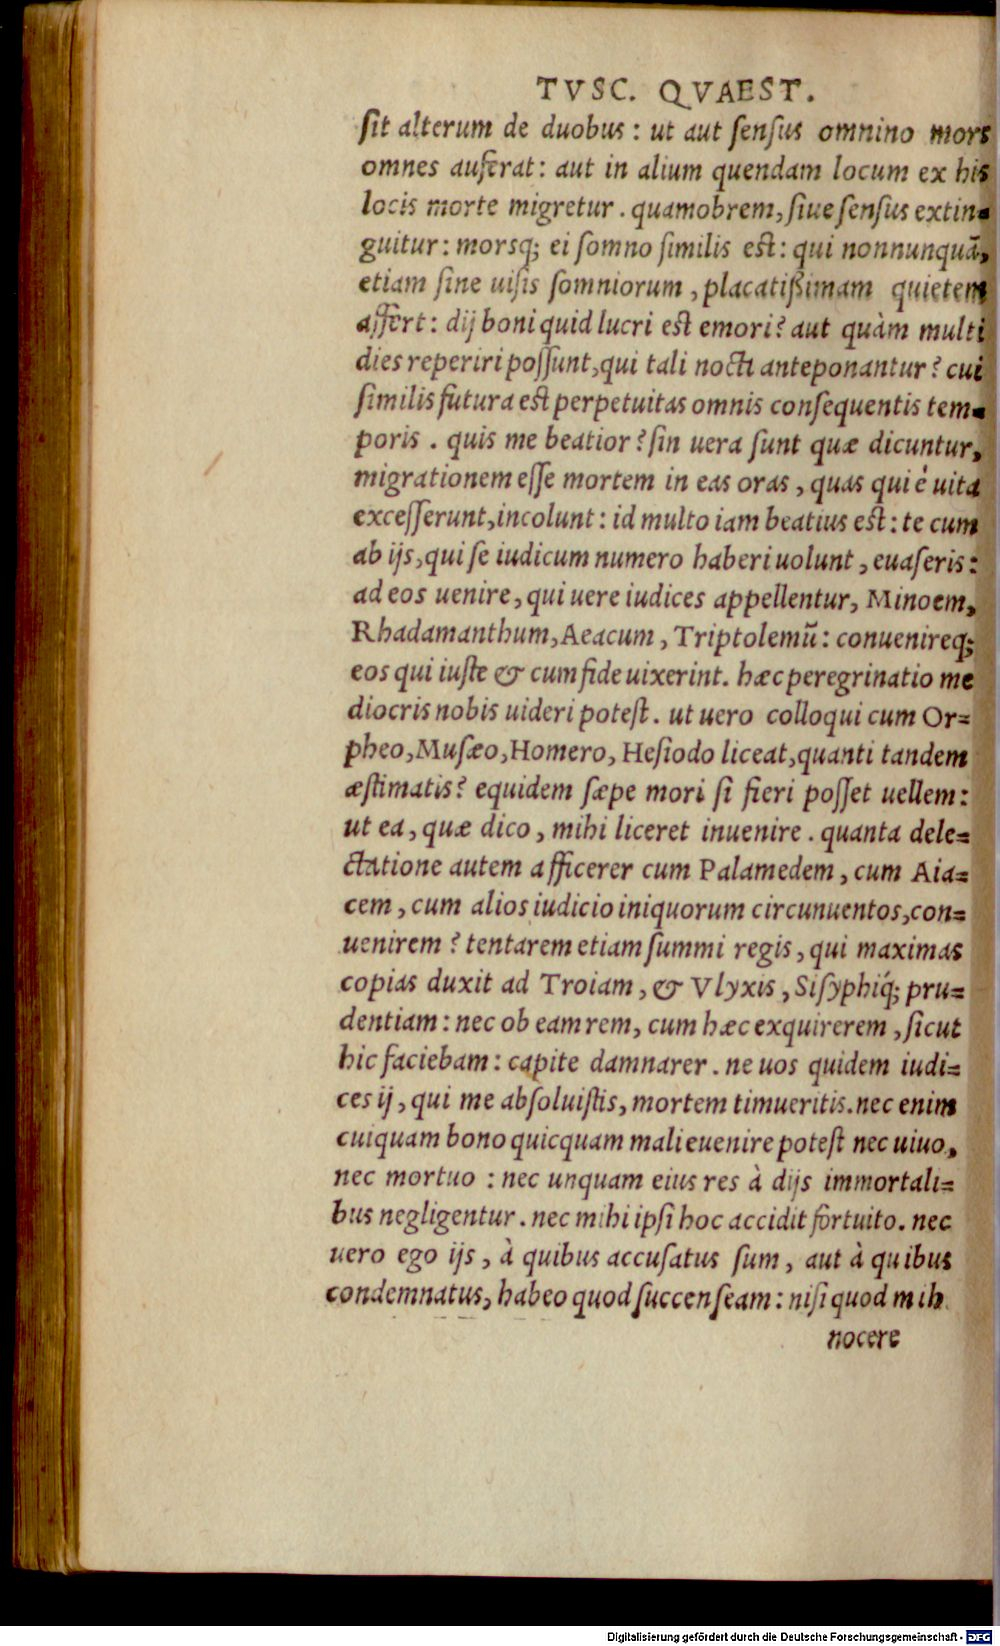 TVSC. QVAEST.
ſit alterum de duobus : ut aut ſenſus omnino mors
omnes auferat : aut in alium quendam locum ex his
locis morte migretur . quamobrem, ſiue ſenſus extin-
guitur : morsq; ei ſomno ſimilis eſt : qui nonnunquã,
etiam ſine uiſis ſomniorum , placatißimam quietem
affert : dij boni quid lucri eſt emori? aut quàm multi
dies reperiri poſſunt, qui tali nocti anteponantur? cui
ſimilis futura eſt perpetuitas omnis conſequentis tem-
poris . quis me beatior? ſin uera ſunt quæ dicuntur,
migrationem eſſe mortem in eas oras , quas qui è uita
exceſſerunt, incolunt : id multo iam beatius eſt : te cum
ab ijs, qui ſe iudicum numero haberi uolunt , euaſeris :
ad eos uenire, qui uere iudices appellentur, Minoem,
Rhadamanthum, Aeacum , Triptolemũ : conuenireq;
eos qui iuſte & cum fide uixerint. hæc peregrinatio me
diocris nobis uideri poteſt . ut uero colloqui cum Or=
pheo, Muſæo, Homero, Heſiodo liceat, quanti tandem
æſtimatis? equidem ſæpe mori ſi fieri poſſet uellem :
ut ea, quæ dico , mihi liceret inuenire . quanta dele=
ctatione autem afficerer cum Palamedem , cum Aia=
cem , cum alios iudicio iniquorum circunuentos, con=
uenirem ? tentarem etiam ſummi regis , qui maximas
copias duxit ad Troiam , & Vlyxis , Siſyphiq́; pru=
dentiam : nec ob eam rem, cum hæc exquirerem , ſicut
hic faciebam : capite damnarer . ne uos quidem iudi=
ces ij , qui me abſoluiſtis, mortem timueritis. nec enim
cuiquam bono quicquam mali euenire poteſt nec uiuo,
nec mortuo : nec unquam eius res à dijs immortali=
bus negligentur . nec mihi ipſi hoc accidit fortuito. nec
uero ego ijs , à quibus accuſatus ſum , aut à quibus
condemnatus, habeo quod ſuccenſeam : niſi quod mih
nocere
Digitalisierung gefördert durch die Deutsche Forschungsgemeinschaft - DFG